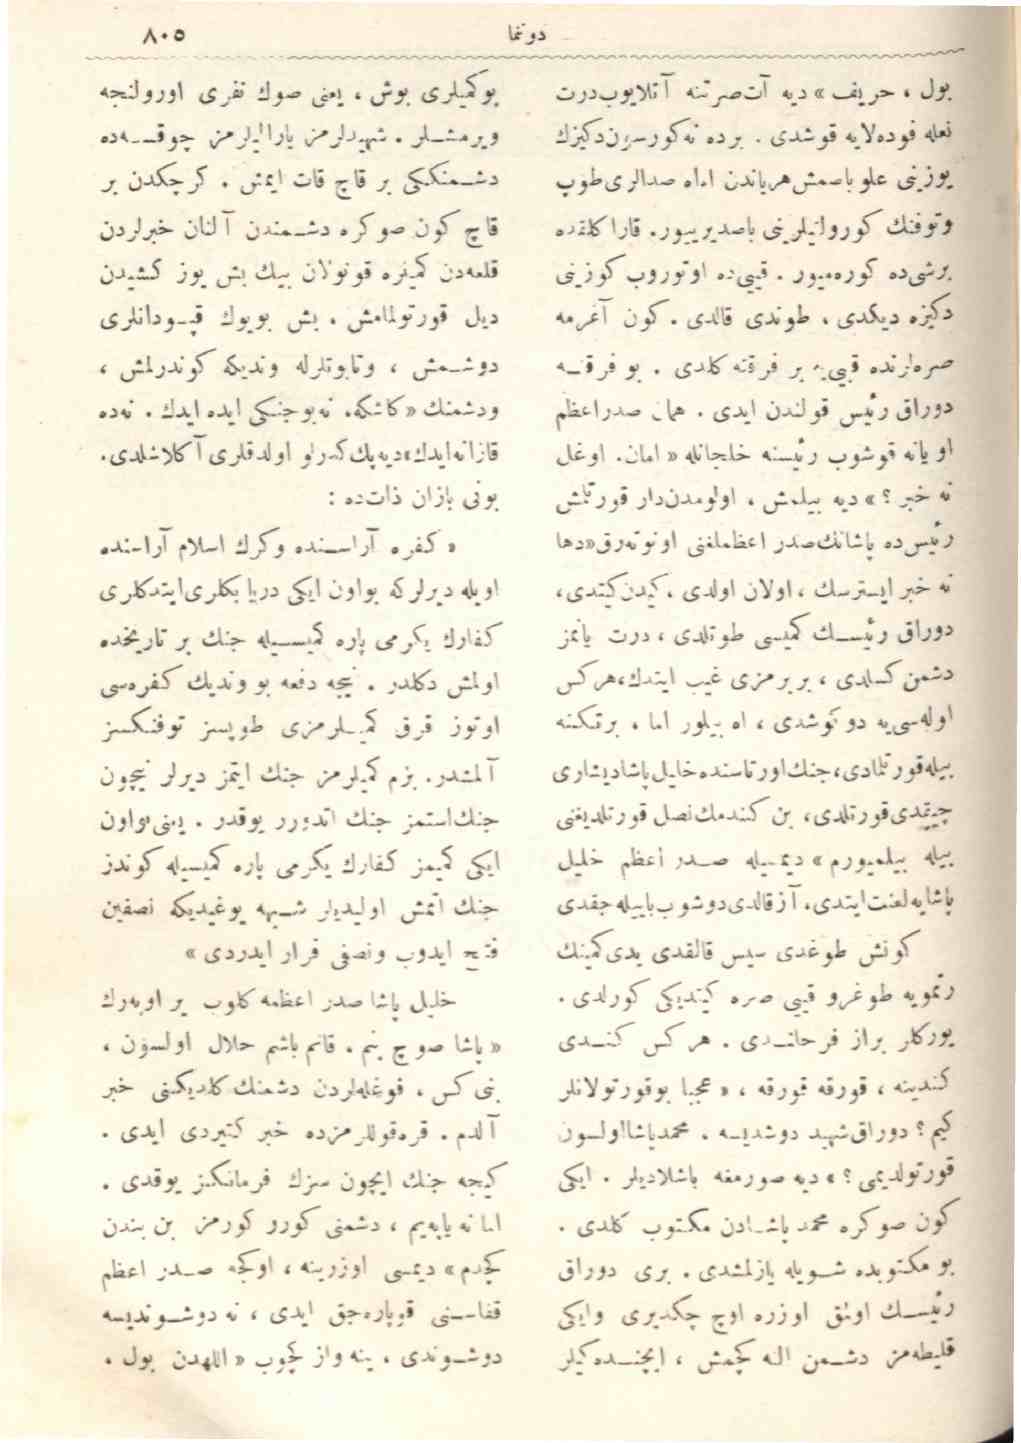 دونما
٨٠٥
بول ، حریف » دیه آت صرتنه آتلایوب درت
نعله قودەلایه قوشدی . برده نه كورسون دكیزك
یوزینی علو باصمش هر یاندن الله صدالری طوپ
وتوفنك كورولتیلرینی باصدیرییور. قارا كلقده
برشی ده كورەمیور . قییی ده اوتوروب كوزینی
دكیزه دیكدی ، طوندی قالدی . كون آغرمه
صرەلرنده قیی یه بر فرقته كلدی . بو فرقته
دوراق رئیس قولندن ایدی . همان صدراعظم
او یانه قوشوب رئیسنه خلجانله « امان. اوغل
نه خبر ؟ » دیه بیلمش ، اولومدن دار قورتلمش
رئیس ده پاشانك صدر اعظملغنی اونوتەرق «دها
نه خبر ایسترسك ، اولان اولدی ، كیدن كیتدی،
دوراق رئیسك كمیسی طوتلدی ، درت یانمز
دشمن كسلدی ، بربرمزی غیب ایتدك، هركس
اولەسی یه دوكوشدی ، اه بیلور اما ، برتكنه
بیله قورتلمادی، جنك اورتاسنده خلیل پاشا دیشاری
چیقدی قورتلدی، بن كندمك نصل قورتلدیغنی
بیله بیلمیورم » دیمسیله صدر اعظم خلیل
پاشایه لعنت ایتدی، آز قالدی دوشوب باییله جقدی
كونش طوغدی سیس قالقدی یدی كمینك
رتمویه طوغرو قییی صره كیتدیكی كورلدی .
یوركلر براز فرحلندی . هر كس كندی
كندینه ، قورقه قورقه ، « عجبا بو قورتولانلر
كیم ؟ دوراق شهید دوشدیسه ، محمدپاشا اولسون
قورتولدیمی ؟ » دیه صورمغه باشلادیلر . ایكی
كون صوكره محمد پاشادن مكتوب كلدی .
بو مكتوبده شویله یازلمشدی . بری دوراق
رئیسك اولمق اوزره اوچ چكدیری وایكی
قلیطەمز دشمن الله كچمش ، ایچنده كیلر
بوكمیلری بوش ، یعنی صوك نفری اورولنجه
ویرمشلر . شهیدلرمز یارالیلرمز چوقسه ده
دشمنككی بر قاچ قات ایمش . كرچكدن بر
قاچ كون صوكره دشمندن آلنان خبرلردن
قلعەدن كمیلره قونولان بیك بش یوز كشیدن
دیل قورتولمامش . بش بویوك قپودانلری
دوشمش ، وتابوتلرله وندیكه كوندرلمش ،
ودشمنك « كاشكه، نه بو جنكی ایده ایدك . نەده
قازانه ایدك» دیه پك كدرلو اولدقلری آكلاشلدی.
بونی یازان ذات ده :
« كفره آراسنده وكرك اسلام آراسنده
اویله دیرلركه بو اون ایكی دریا بكلری ایتدكلری
كفارك یكرمی پاره كمیسیله جنك بر تاریخده
اولمش دكلدر . نیجه دفعه بو وندیك كفرەسی
اوتوز قرق كمیلرمزی طوپسز توفنكسز
آلمشدر. بزم كمیلرمز جنك ایتمز دیرلر نیچون
جنك استمز جنك اتدورر یوقدر . یعنی بو اون
ایكی كمیمز كفارك یكرمی پاره كمیسیله كوندز
جنك اتمش اولیدیلر شبهه یوغیدیكه نصفین
فتح ایدوب ونصفی فرار ایدردی »
خلیل پاشا صدر اعظمه كلوب یر اوپەرك
« پاشا صوچ بنم . قانم باشم حلال اولسون ،
بنی كس ، قوغلەلردن دشمنك كلدیكنی خبر
آلدم . قرەقوللرمزده خبر كتیردی ایدی .
كیجه جنك ایچون سزك فرمانكز یوقدی .
اما نه یاپەیم ، دشمنی كورو كورمز بن بندن
كچدم » دیمسی اوزرینه ، اوكجه صدر اعظم
قفاسنی قوپارەجق ایدی ، نه دوشوندیسه
دوشوندی . ینه واز كچوب « اللهدن بول .